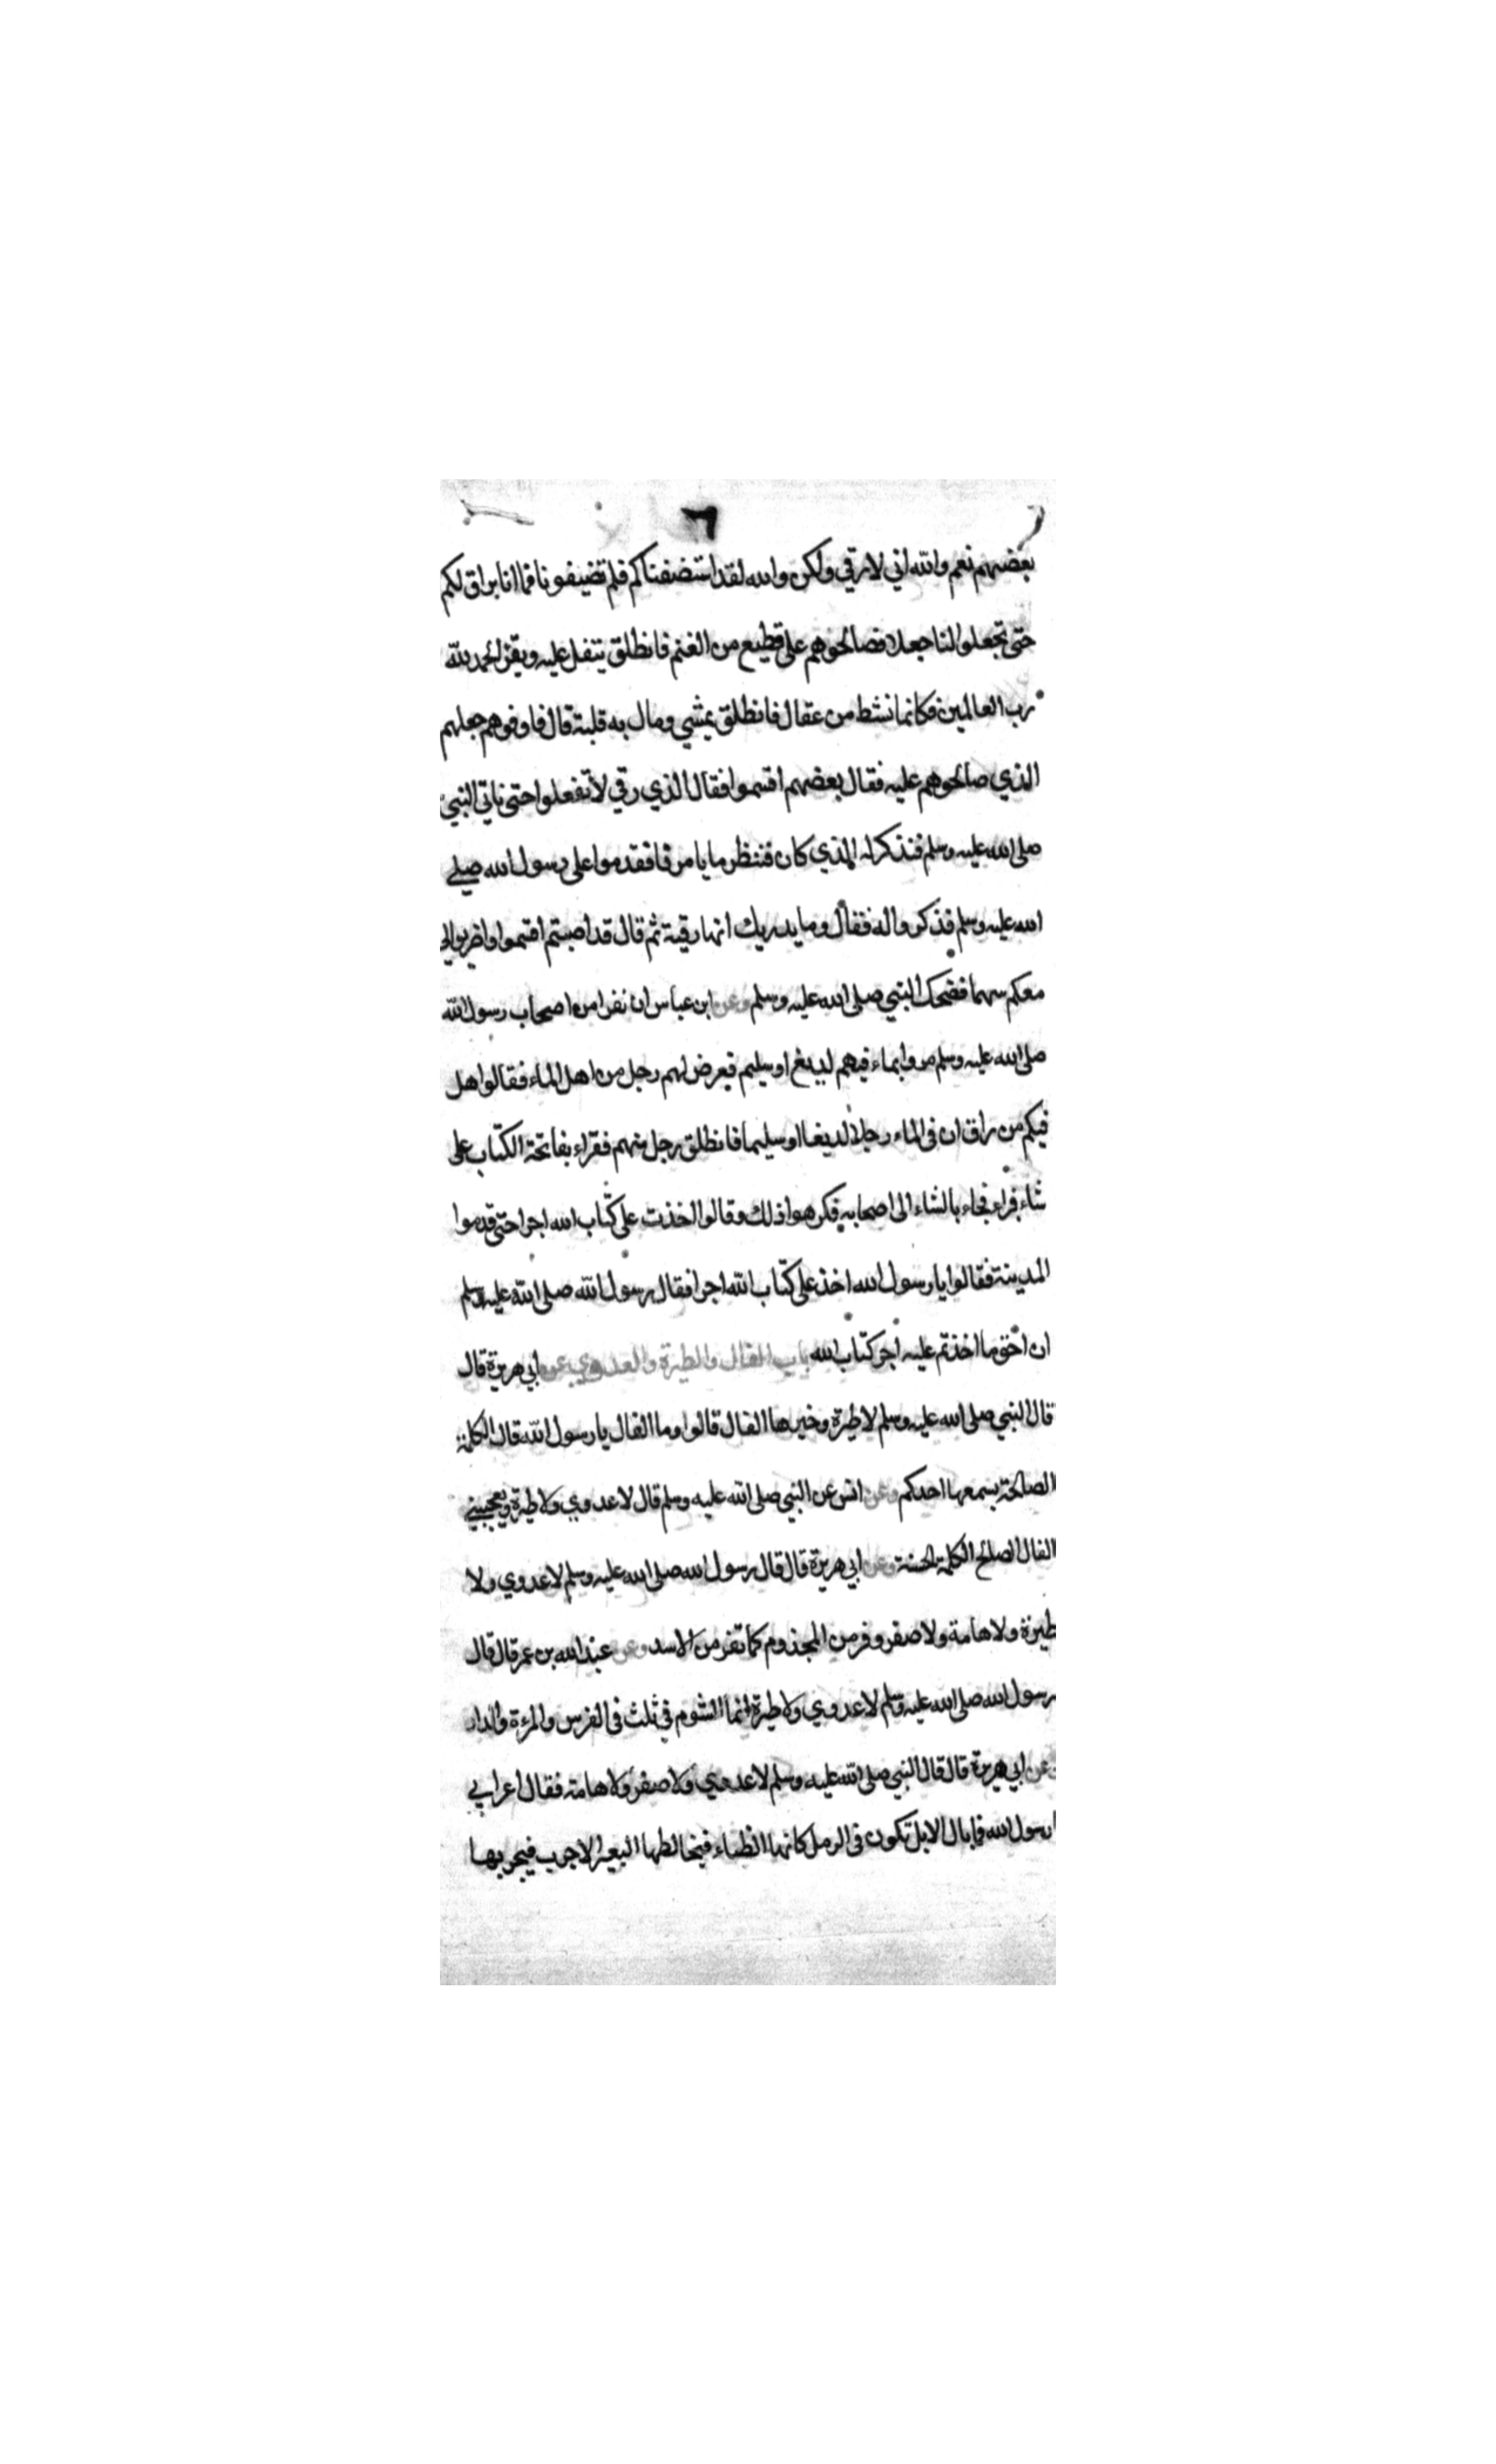 ٦
بعضهم نعم والله اني لارقي ولكن والله لقد استضفناكم فلم تضيفونا فما انا براق لكم
حتى تجعلوا لنا جعلا فصالحوهم على قطيع من الغنم فانطلق يتفل عليه ويقرا الحمد لله
رب العالمين فكانما نشط من عقال فانطلق يمشي وماله به قلبة قال فاوفوهم جعلهم
الذي صالحوهم عليه فقال بعضهم اقسموا فقال الذي رقي لا تفعلوا حتى ناتي النبي
صلى الله عليه وسلم فنذكر له الذي كان فننظر ما يامرنا فقدموا على رسول الله صلى
الله عليه وسلم فذكروا له فقال وما يدريك انها رقية ثم قال قد اصبتم اقسموا واضربوا لي
معكم سهما فضحك النبي صلى الله عليه وسلم وعن ابن عباس ان نفرا من اصحاب رسول الله
صلى الله عليه وسلم مروا بماء فيهم لديغ او سليم فعرض لهم رجل من اهل الماء فقالوا هل
فيكم من راق ان في الماء رجلا لديغا او سليما فانطلق رجل منهم فقراء بفاتحة الكتاب على
شاء فبراء فجاء بالشاء الى اصحابه فكرهوا ذلك وقالوا اخذت على كتاب الله اجرا حتى قدموا
المدينة فقالوا يا رسول الله اخذ على كتاب الله اجرا فقال رسول الله صلى الله عليه وسلم
ان احق ما اخذتم عليه اجر كتاب الله باب الفال والطيرة والعدوي عن ابي هريرة قال
قال النبي صلى الله عليه وسلم لا طيرة وخيرها الفال قالوا وما الفال يا رسول الله قال الكلمة
الصالحة يسمعها احدكم وعن انس عن النبي صلى الله عليه وسلم قال لا عدوي ولا طيرة ويعجبني
الفال الصالح الكلمة الحسنة وعن ابي هريرة قال قال رسول الله صلى الله عليه وسلم لا عدوي ولا
طيرة ولا هامة ولا صفر وفر من المجذوم كما تفر من الاسد وعن عبد الله بن عمر قال قال
رسول الله صلى الله عليه وسلم لا عدوي ولا طيرة انما الشوم في ثلث في الفرس والمرءة والدار
وعن ابي هريرة قال قال النبي صلى الله عليه وسلم لا عدوي ولا صفر ولا هامة فقال اعرابي
رسول الله فما بال الابل تكون في الرمل كانها الظباء فيخالطها البعير الاجرب فيجربها